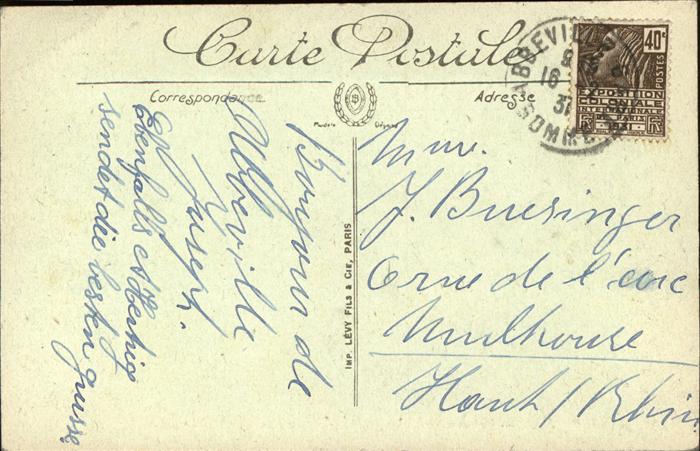 Carte Postale
Correspondance
Adresse
Modèle Déposé
ABBEVILLE
16
31
SOMME
40c
POSTES
EXPOSITION
COLONIALE
INTERNATIONALE
Bonjour de
Abbeville
Joseph.
Ebenfalls
sendet die besten Grüsse
IMP. LÉVY FILS & Cie, PARIS
Mme.
J. Buesinger
6 rue de l'arc
Mulhouse
Haut/Rhin